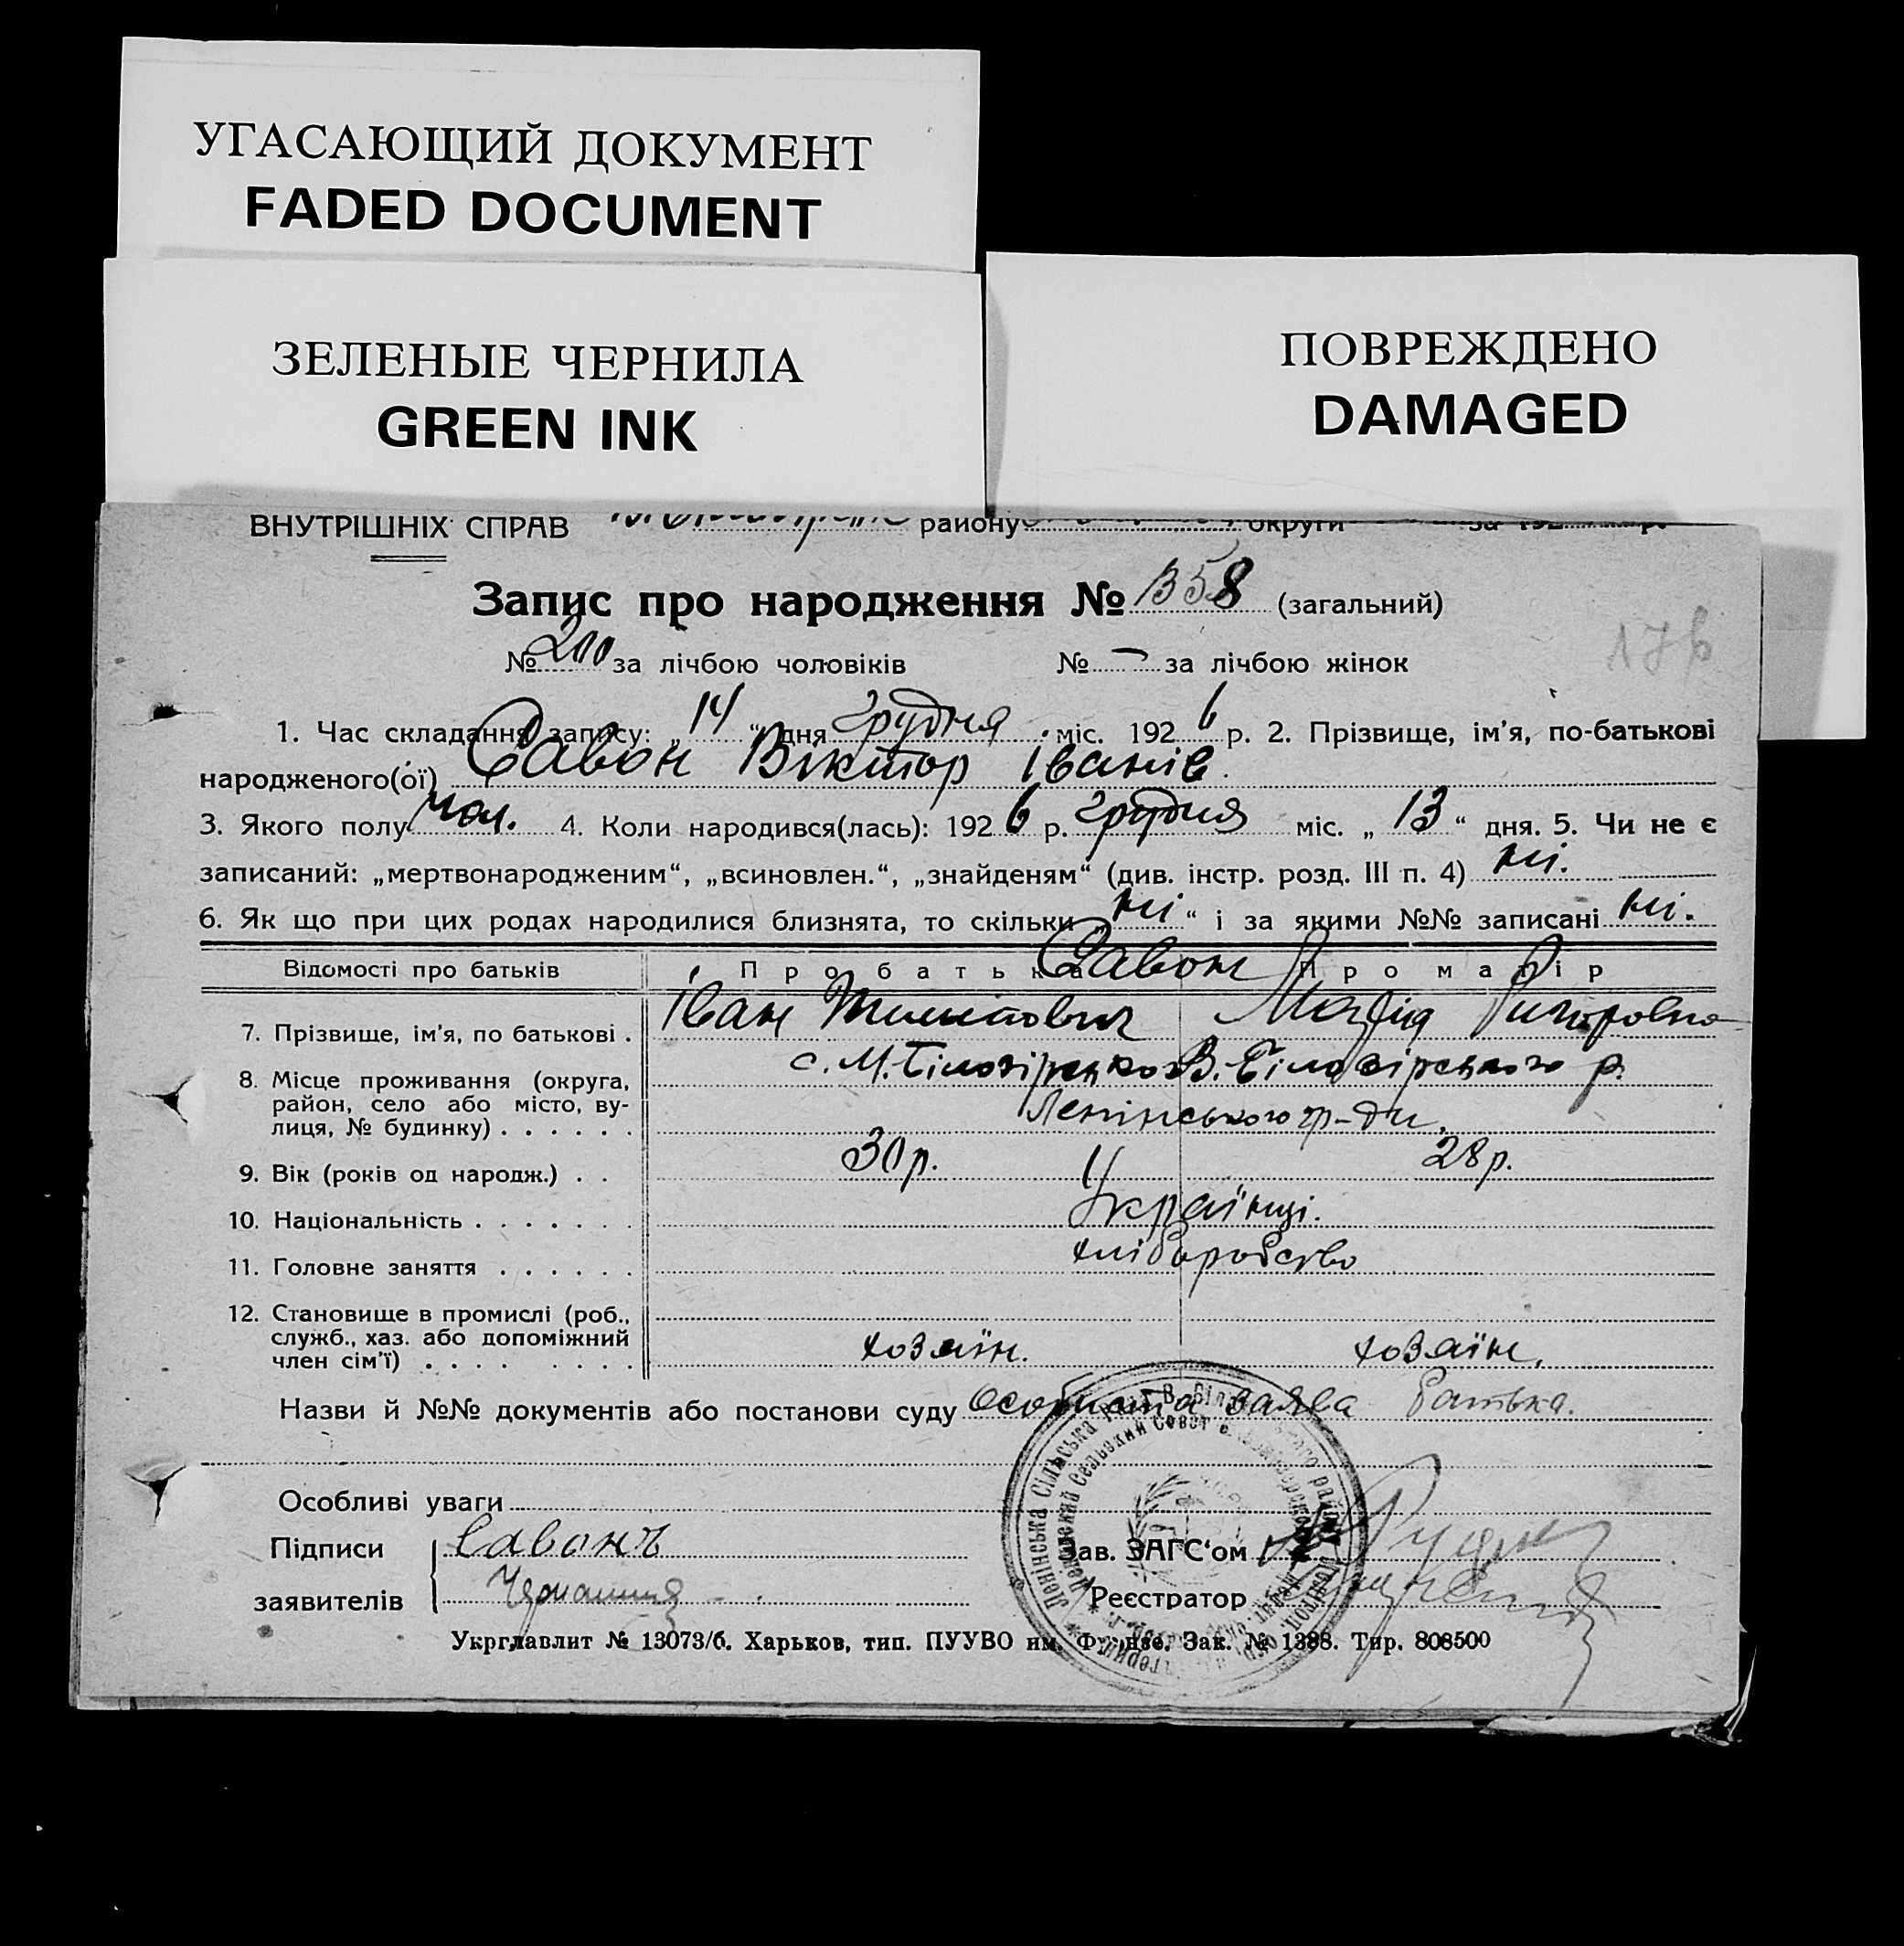 УГАСАЮЩИЙ ДОКУМЕНТ
FADED DOCUMENT
ЗЕЛЕНЫЕ ЧЕРНИЛА
GREEN INK
ПОВРЕЖДЕНО
DAMAGED
ВНУТРІШНІХ СПРАВ району округи за 192
Запис про народження № 358 (загальний)
№ 200 за лічбою чоловіків № — за лічбою жінок
1. Час складання запису: „14“ дня грудня міс. 1926 р. 2. Прізвище, ім'я, по-батькові
народженого(ої) Савон Віктор Іванів.
3. Якого полу чол. 4. Коли народився(лась): 1926 р. грудня міс. „13“ дня. 5. Чи не є
записаний: „мертвонародженим“, „всиновлен.“, „знайденям“ (див. інстр. розд. III п. 4) ні.
6. Як що при цих родах народилися близнята, то скільки „ні“ і за якими №№ записані ні.
Відомості про батьків Про батька Савон Про матір
7. Прізвище, ім'я, по батькові . Іван Марія
8. Місце проживання (округа, с. М. Білозірського р.
район, село або місто, ву-
лиця, № будинку) . . . . . . Ленінського
9. Вік (років од народж.) . . 30 р. 28 р.
10. Національність . . . . . . . Українці.
11. Головне заняття . . . . . . хліборобство
12. Становище в промислі (роб.,
служб., хаз. або допоміжний
член сім'ї) . . . . . . . . хозяїн. хозяїн.
Назви й №№ документів або постанови суду Особиста заява батька.
Особливі уваги
Підписи Савонъ Зав. ЗАГС'ом
заявителів Реєстратор
Ленінська Сільська Рада
Укрглавлит № 13073/б. Харьков, тип. ПУУВО им. Фрунзе. Зак. № 1388. Тир. 808500